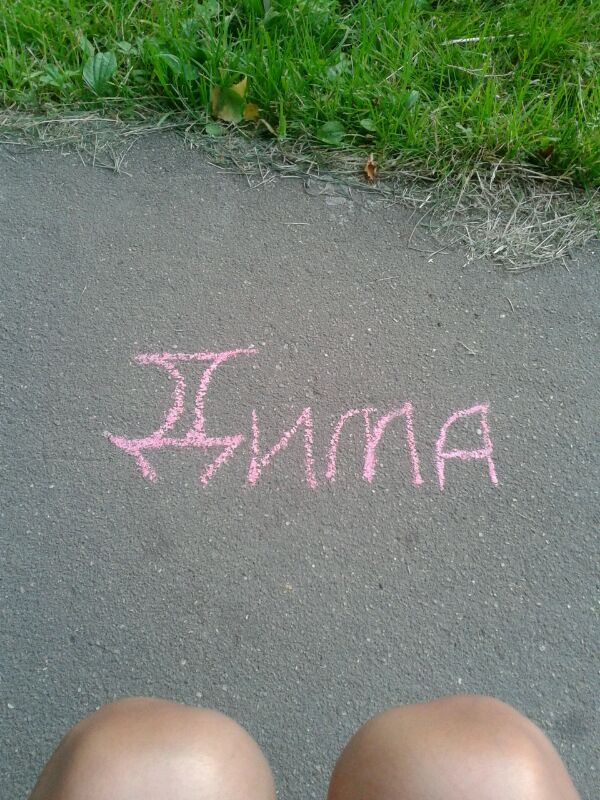 Дима